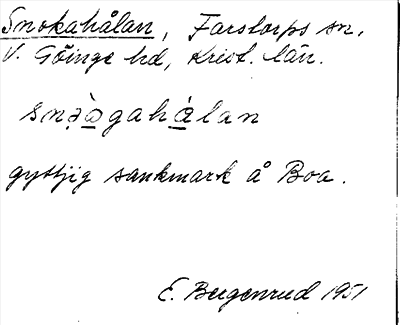 Snokahålan, Farstorps sn,
V. Göinge hd, Krist. län.
gyttjig sankmark å Boa.
E. Bergenrud 1951